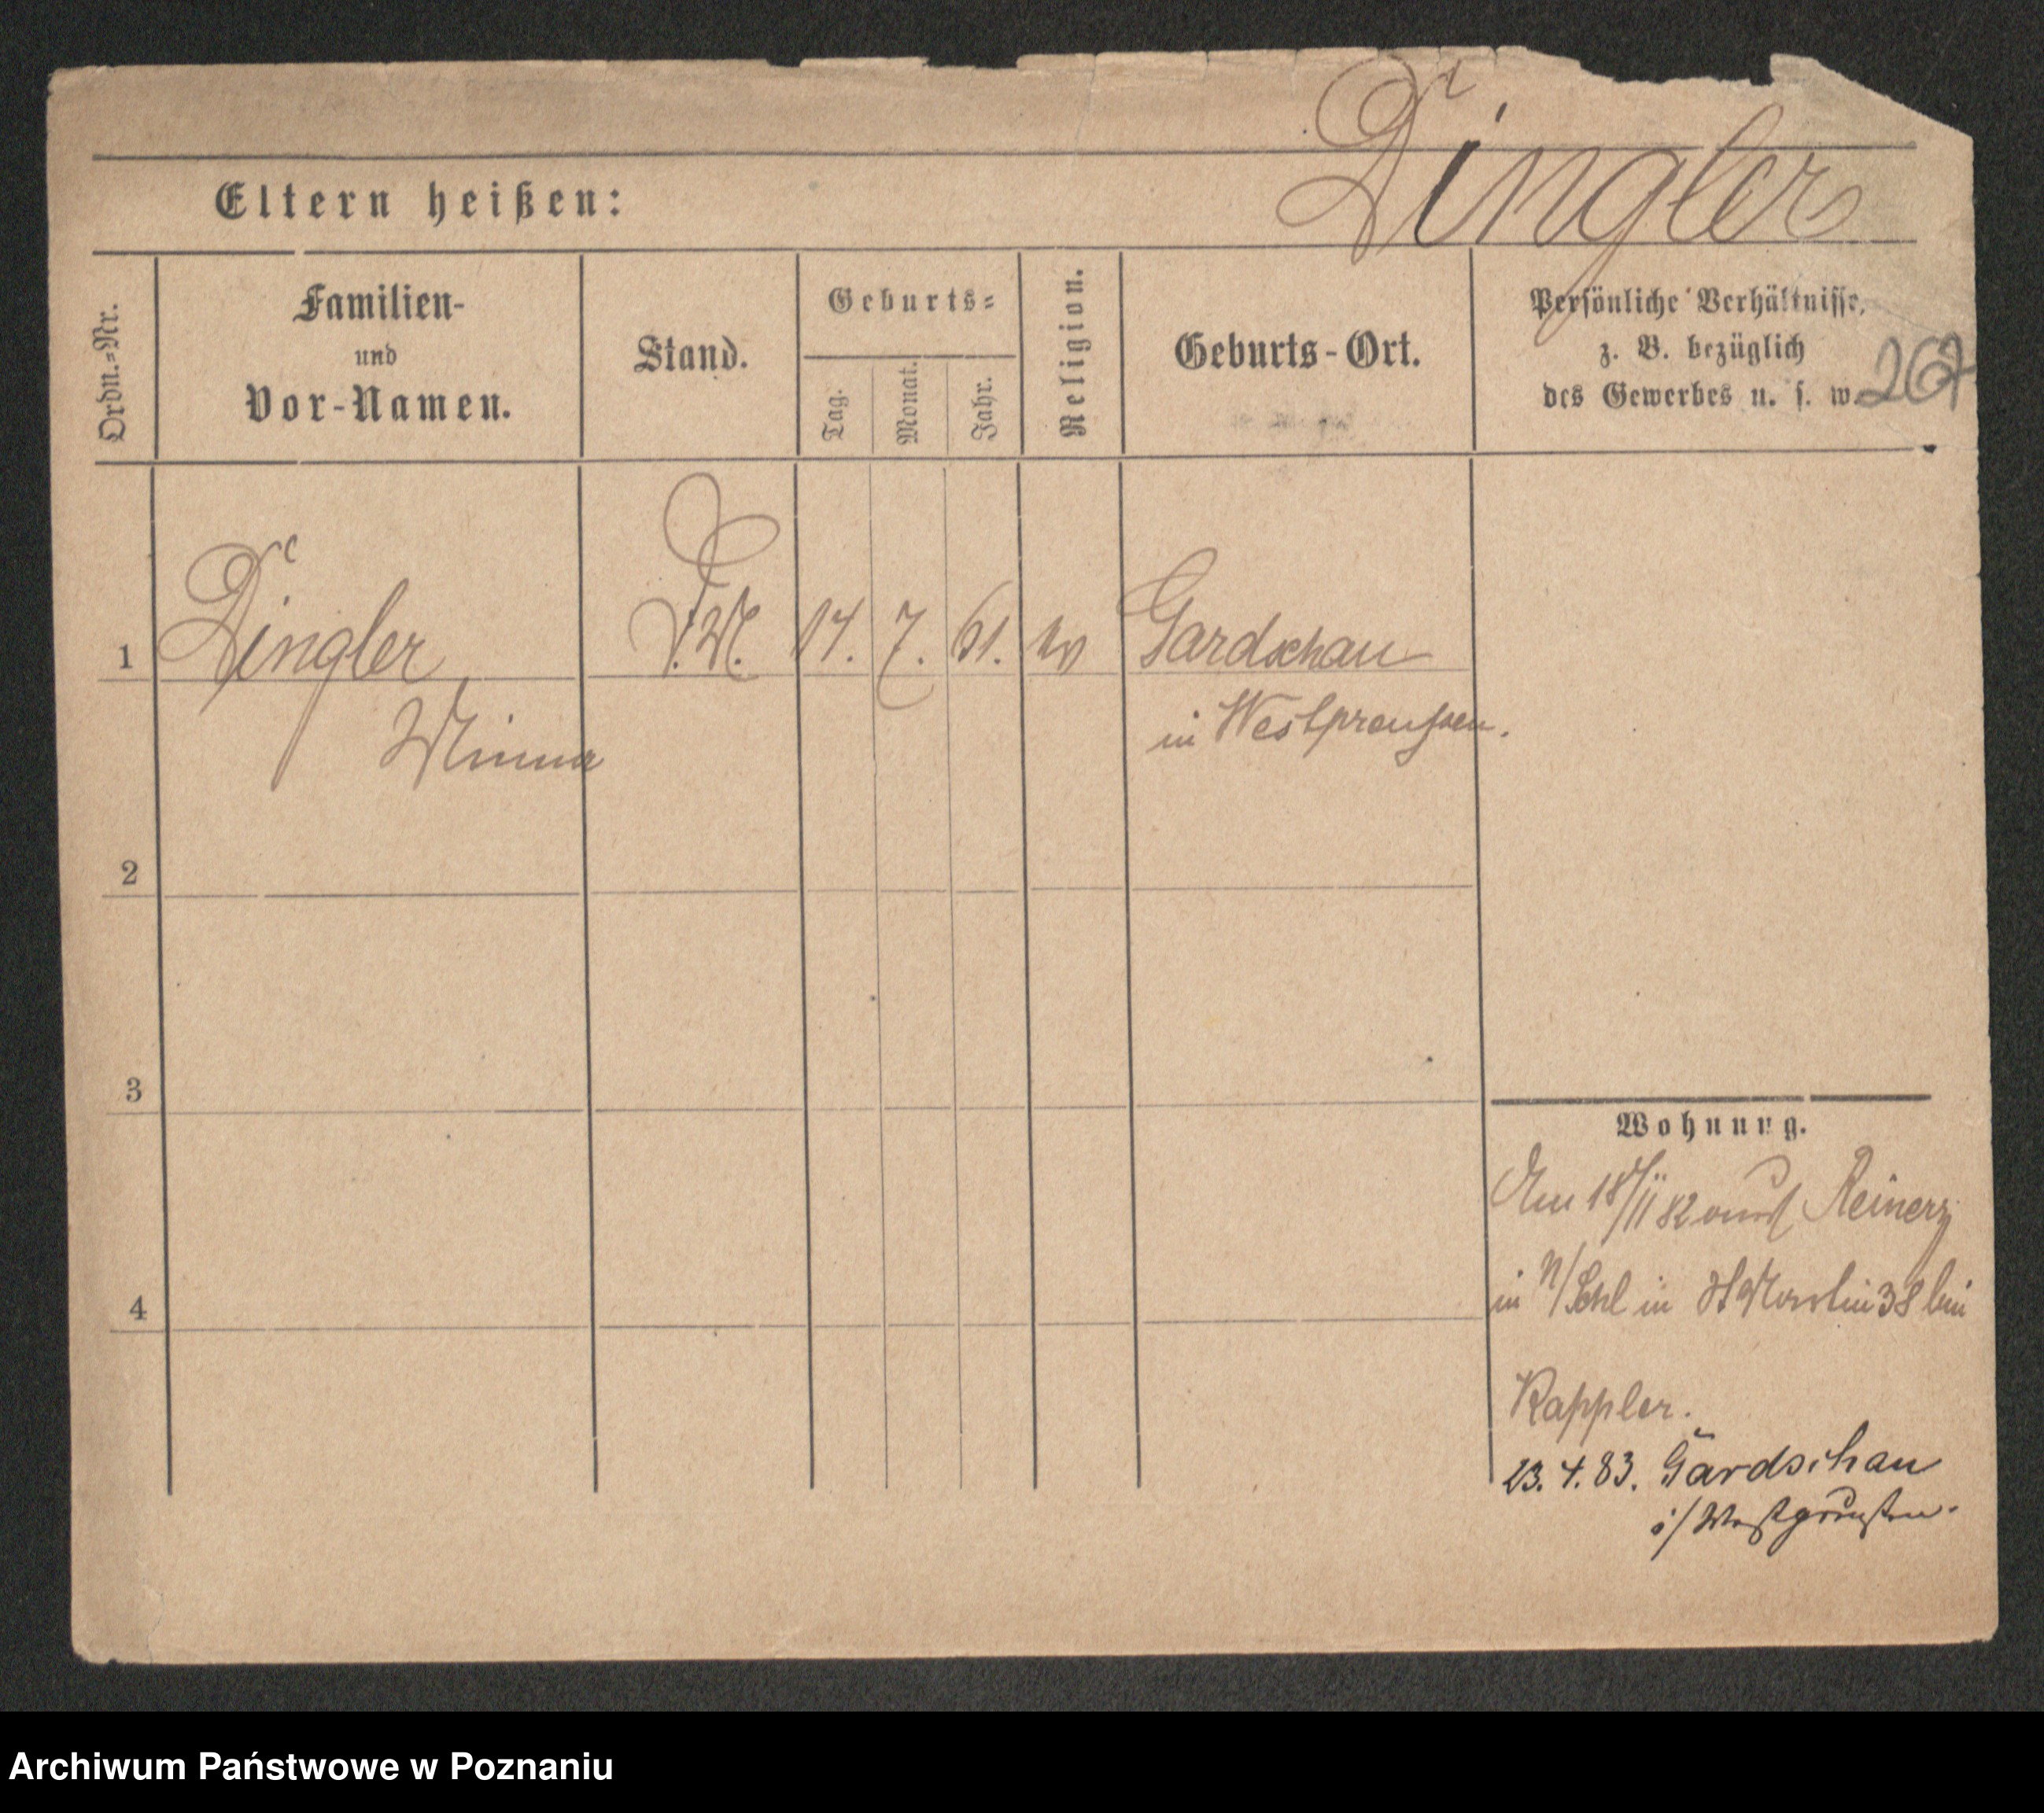 Dingler
Eltern heißen:
Ordn.=Nr.
Familien-
und
Vor-Namen.
Stand.
Geburts=
Tag.
Monat.
Jahr.
Religion.
Geburts-Ort.
Persönliche Verhältnisse,
z. B. bezüglich
des Gewerbes u. s. w.
267
1 Dingler 14. 7. 61. Gardschau
Minna in Westpreußen.
2
3
4
Wohnung.
Am 18/11 82 aus Reinerz
in Schl in St Martin 38 bei
Kappler.
23. 4. 83. Gardschau
i/ Westpreußen.
Archiwum Państwowe w Poznaniu